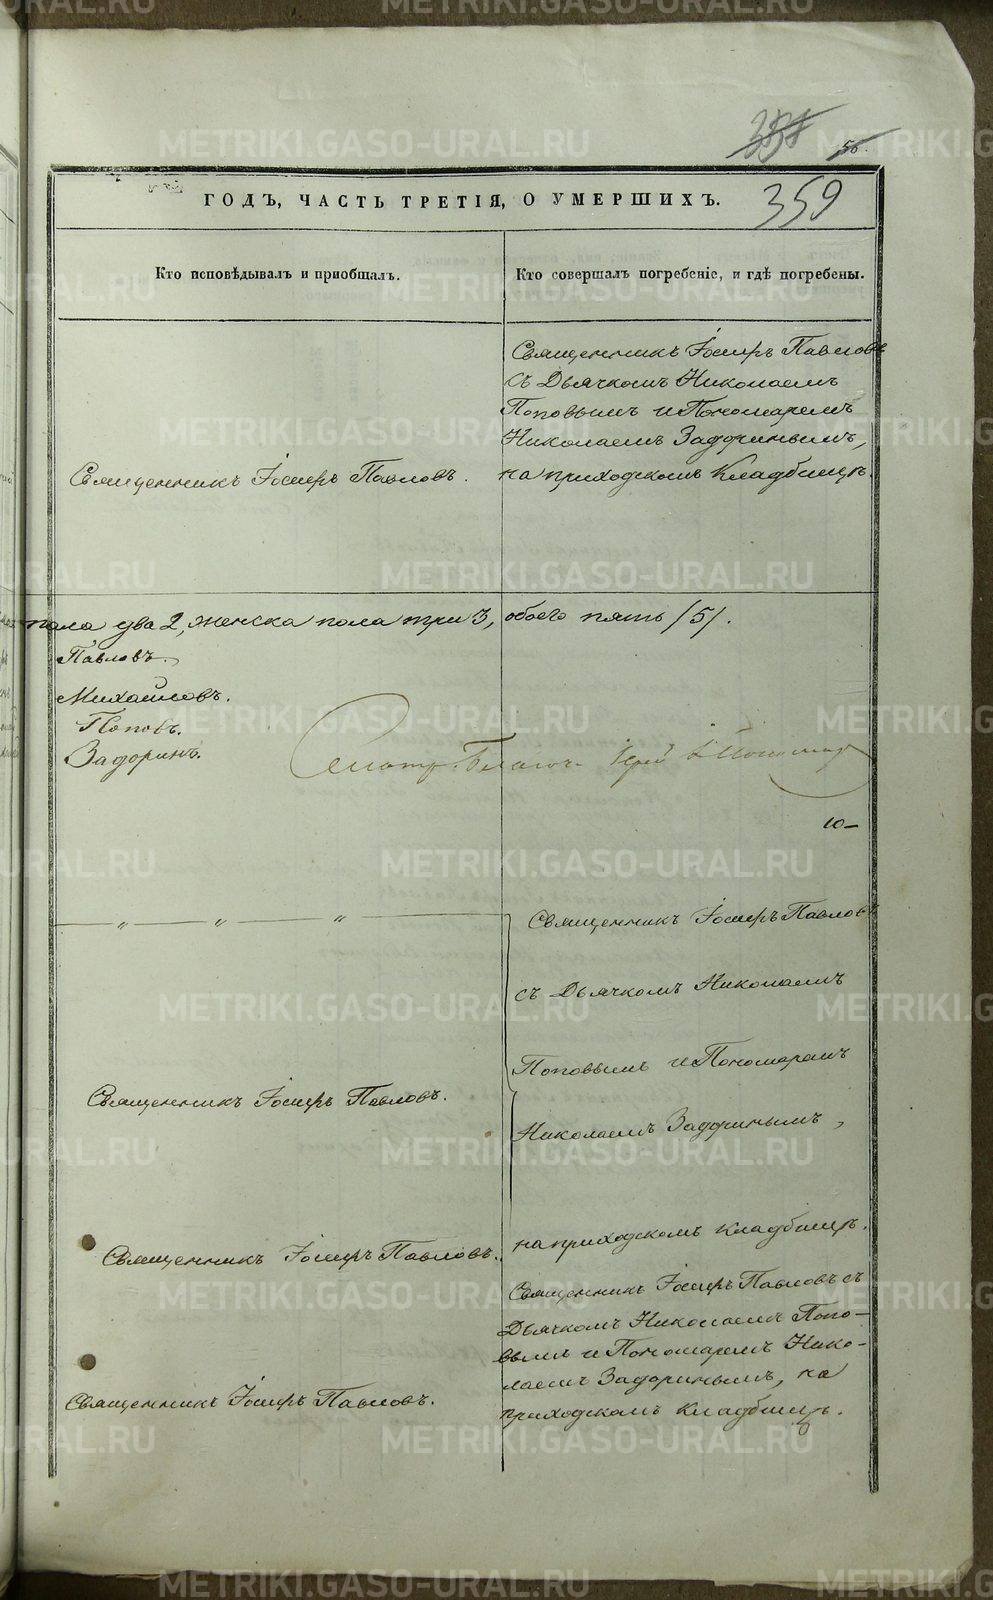 56.
359
ГОДЪ, ЧАСТЬ ТРЕТІЯ, О УМЕРШИХЪ.
Кто исповѣдывалъ и приобщалъ.
Кто совершалъ погребеніе, и гдѣ погребены.
Священникъ Іосифъ Павловъ
съ Дьячкомъ Николаемъ
Поповымъ и Пономаремъ
Николаемъ Задоринымъ,
на приходскомъ Кладбищѣ.
Священникъ Іосифъ Павловъ.
пола два 2, женска пола три 3, обоего пять /5/.
Павловъ.
Михайловъ.
Поповъ.
Задоринъ.
10-
" " "
Священникъ Іосифъ Павловъ
съ Дьячкомъ Николаемъ
Поповымъ и Пономаремъ
Священникъ Іосифъ Павловъ.
Николаемъ Задоринымъ,
на приходскомъ кладбищѣ.
Священникъ Іосифъ Павловъ.
Священникъ Іосифъ Павловъ съ
Дьячкомъ Николаемъ Попо-
вымъ и Пономаремъ Нико-
лаемъ Задоринымъ, на
приходскомъ кладбищѣ.
Священникъ Іосифъ Павловъ.
METRIKI.GASO-URAL.RU